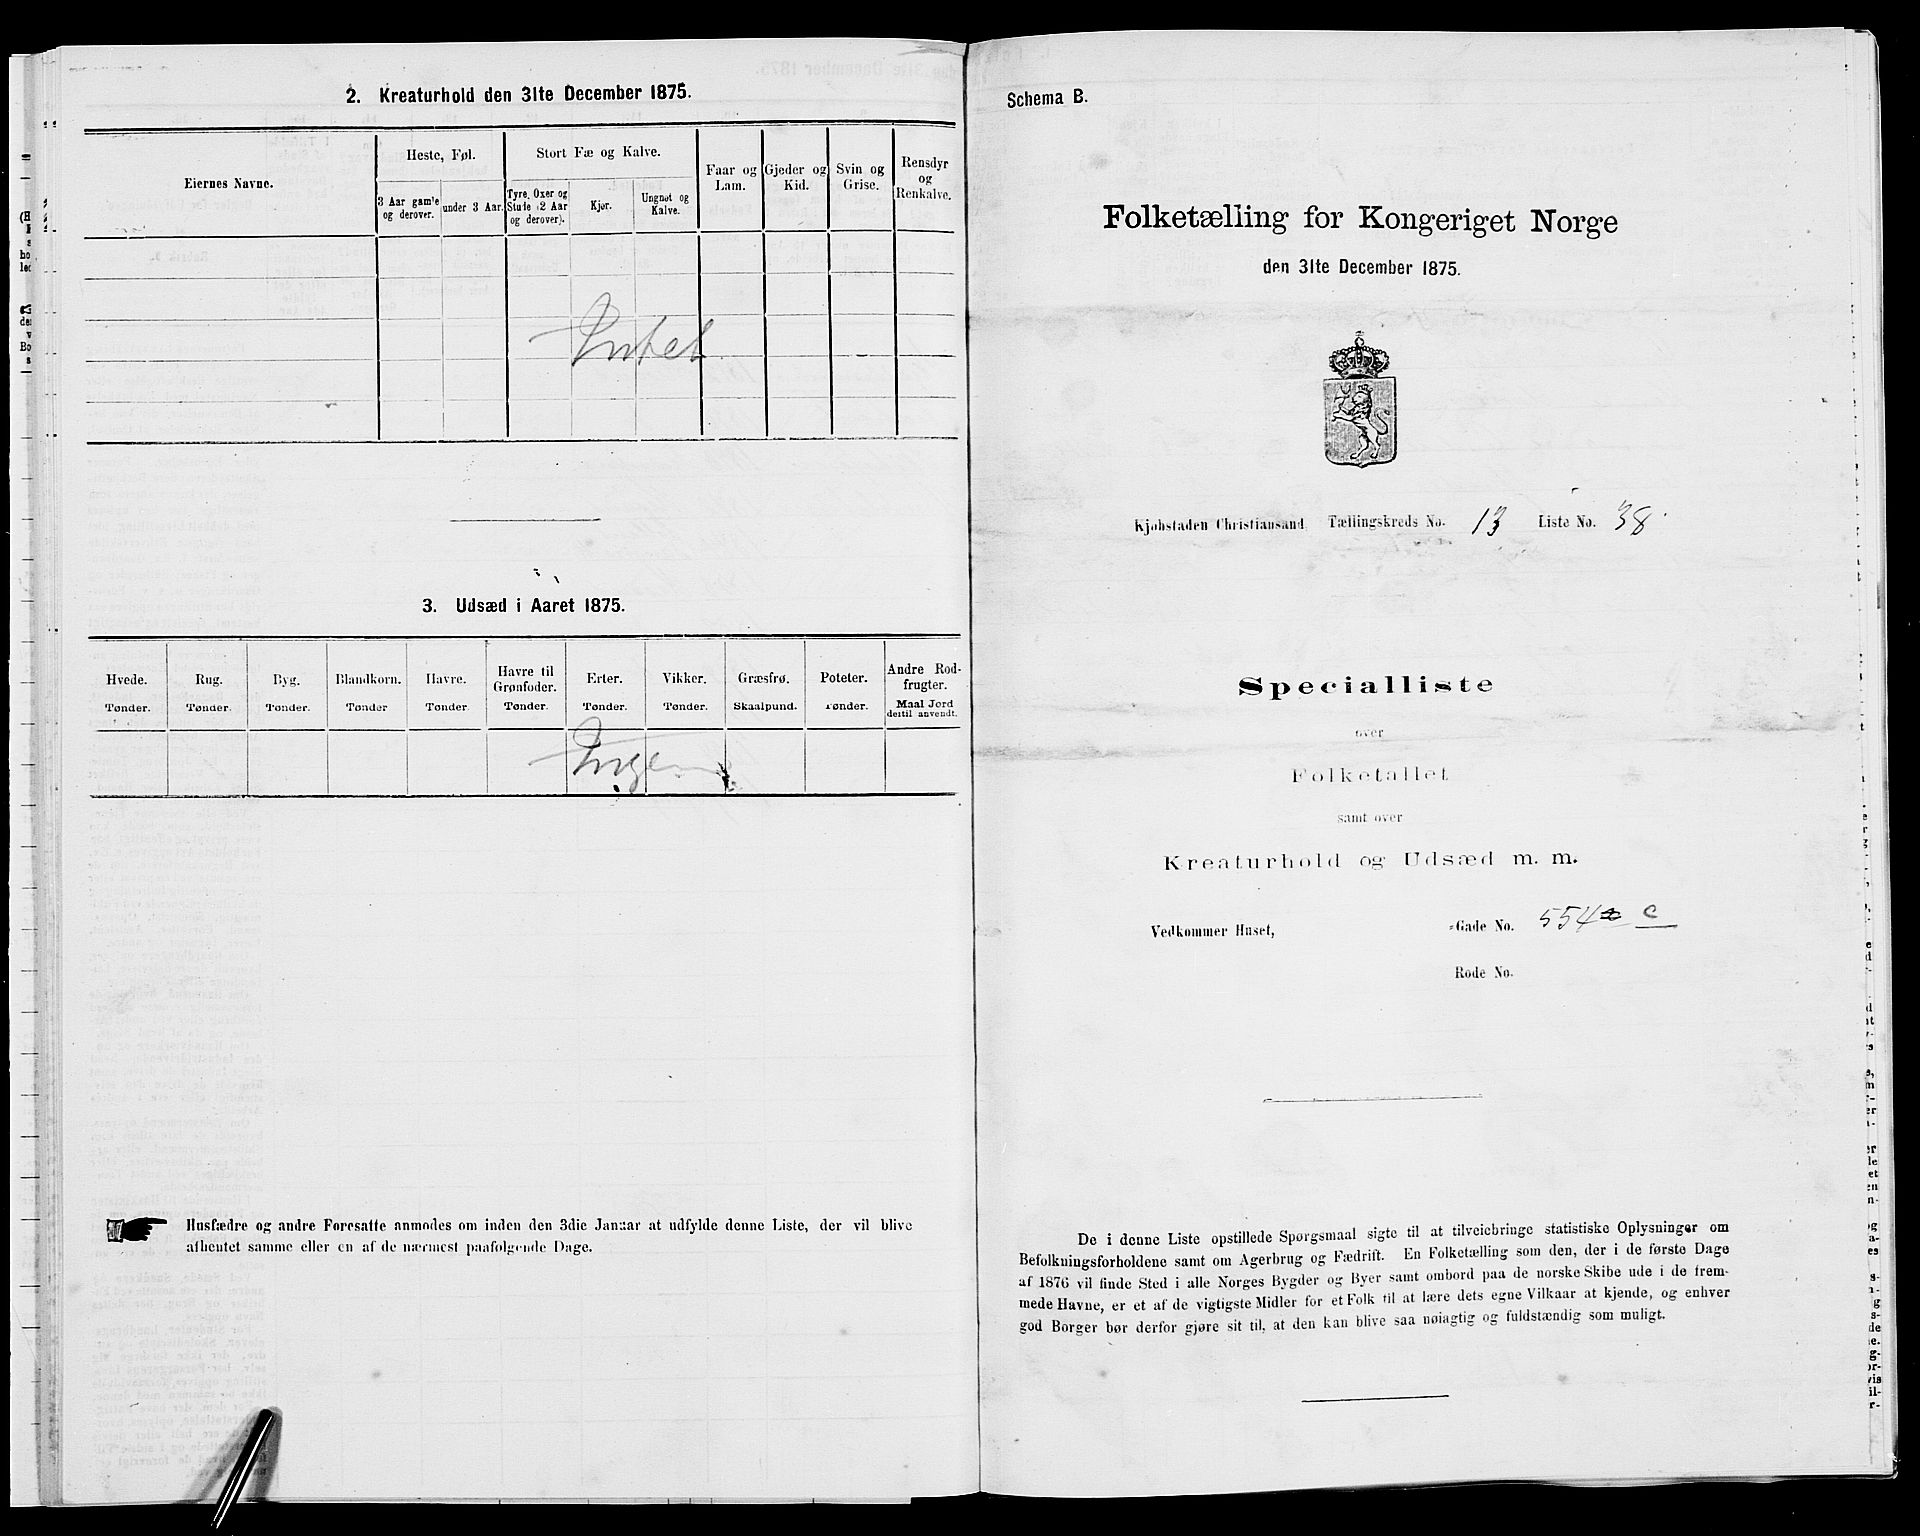 2. Kreaturhold den 31te December 1875.
Eiernes Navne.
Heste, Føl.
3 Aar gamle og derover.
under 3 Aar.
Stort Fæ og Kalve.
Tyre, Oxer og Stude (2 Aar og derover).
Kjør.
Ungnøt og Kalve.
Faar og Lam.
Gjeder og Kid.
Svin og Grise.
Rensdyr og Renkalve.
Intet
3. Udsæd i Aaret 1875.
Hvede. Tønder.
Rug. Tønder.
Byg. Tønder.
Blandkorn. Tønder
Havre. Tønder.
Havre til Grønfoder. Tønder.
Erter. Tønder.
Vikker. Tønder.
Græsfrø. Skaalpund.
Poteter. Tønder.
Andre Rodfrugter. Maal Jord dertil anvendt.
Ingen
Husfædre og andre Foresatte anmodes om inden den 3die Januar at udfylde denne Liste, der vil blive
afhentet samme eller en af de nærmest paafølgende Dage.
Schema B.
Folketælling for Kongeriget Norge
den 31te December 1875.
Kjøbstaden Christiansand, Tællingskreds No. 13 Liste No. 38.
Specialliste
over
Folketallet
samt over
Kreaturhold og Udsæd m. m.
Vedkommer Huset, -Gade No. 554 c
Rode No.
De i denne Liste opstillede Spørgsmaal sigte til at tilveiebringe statistiske Oplysninger om
Befolkningsforholdene samt om Agerbrug og Fædrift. En Folketælling som den, der i de første Dage
af 1876 vil finde Sted i alle Norges Bygder og Byer samt ombord paa de norske Skibe ude i de frem-
mede Havne, er et af de vigtigste Midler for et Folk til at lære dets egne Vilkaar at kjende, og enhver
god Borger bør derfor gjøre sit til, at den kan blive saa nøiagtig og fuldstændig som muligt.